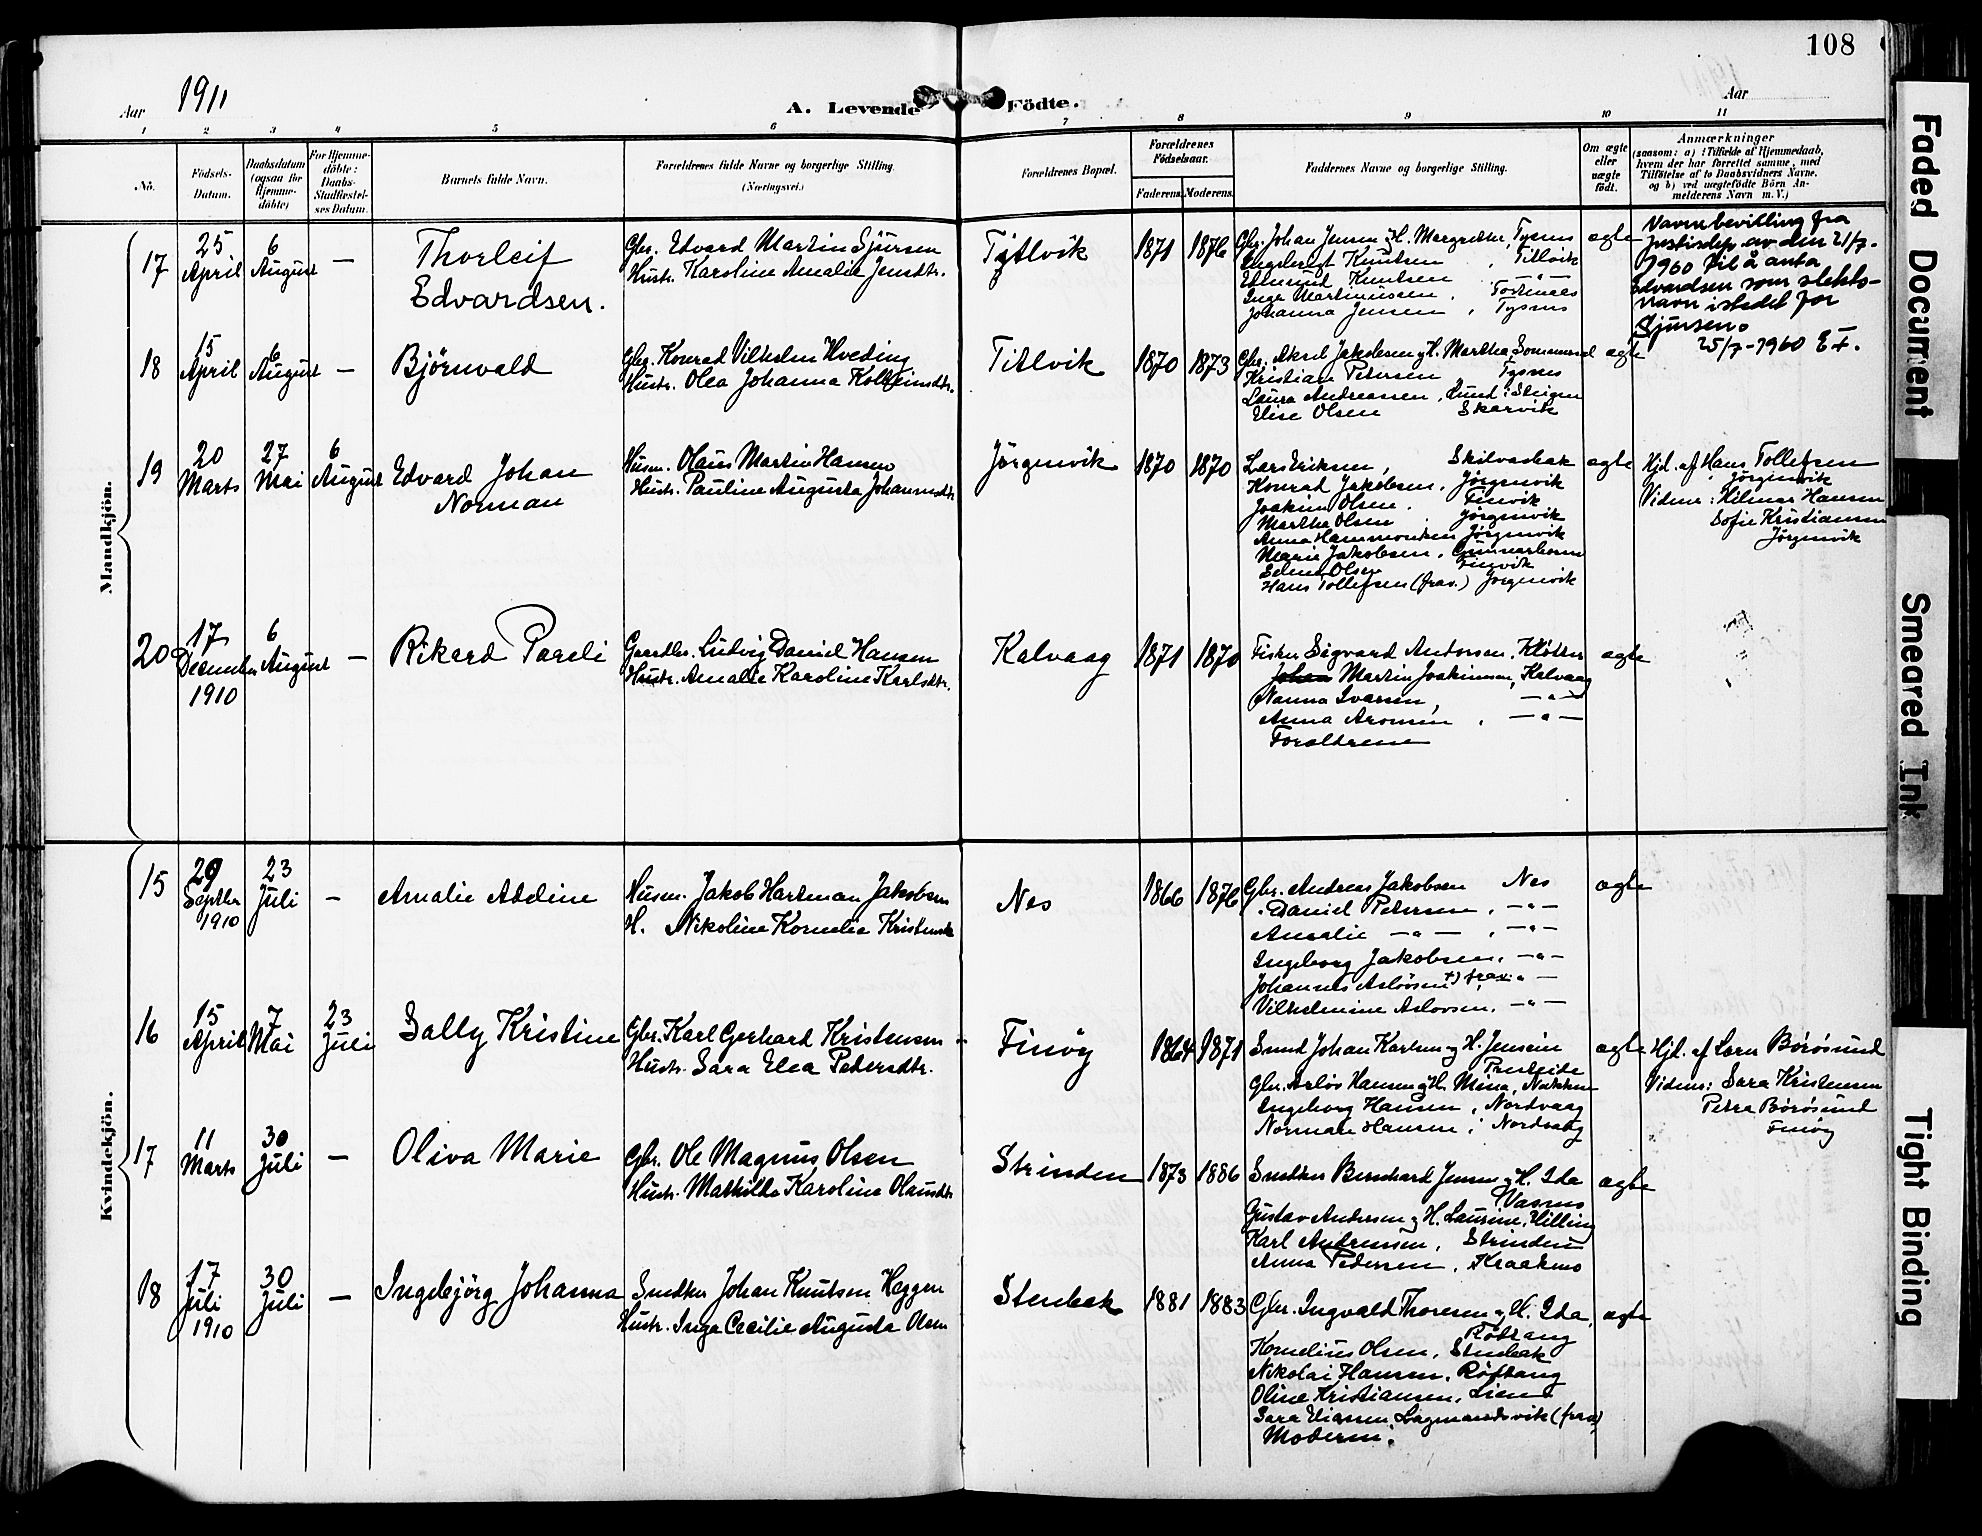 108
Aar 1911
A. Levende Födte.
Aar
1 2 3 4 5 6 7 8 9 10 11
No.
Födsels-
Datum.
Daabsdatum
(ogsaa for
Hjemme-
döbte)
For Hjemme-
döbte:
Daabs-
Stadfæstel-
ses Datum.
Barnets fulde Navn.
Forældrenes fulde Navne og borgerlige Stilling.
(Næringsvei.)
Forældrenes Bopæl.
Forældrenes
Födselsaar.
Faderens. Moderens.
Faddernes Navne og borgerlige Stilling.
Om ægte
eller
uægte
födt.
Anmærkninger
(saasom: a) i Tilfælde af Hjemmedaab,
hvem der har forrettet samme, med
Tilföielse af to Daabsvidners Navne,
og b) ved uægtefödte Börn An-
melderens Navn m. V.)
Mandkjön.
17
25
April
6
August
—
Thorleif
Edvardsen.
Gbr. Edvard Martin Sjursen
Hustr. Karoline Amalie Jensdtr.
Titlvik
1871
1876
Gbr. Johan Jensen & H. Margrethe, Tysnes
Engelbregt Knutsen, Titlvik
Edmund Knutsen —"—
Inga Martinussen,
Johanna Jensen, Tysnes
ægte
Navnebevilling fra
justisdep. av den 21/7-
1960 til å anta
Edvardsen som slekts-
navn istedet for
Sjursen.
25/7-1960 E.F.
18
15
April
6
August
—
Björnvald
Gbr. Konrad Vilhelm Hveding
Hustr. Olea Johanna
Titlvik
1870
1873
Gbr. Aksel Jakobsen & H. Martha, Sommersel
Kristian Petersen Tysnes
Laura Andreassen, Lund i Steigen
Elise Olsen Skarvik
ægte
19
20
Marts
27
Mai
6
August
Edvard Johan
Norman
Husm. Olaus Martin Hansen
Hustr. Pauline Augusta Johannesdtr.
Jörgenvik
1870
1870
Lars Eriksen, Skilvasbak
Konrad Jakobsen, Jörgenvik
Joakim Olsen, Finvik
Martha Olsen, Jörgenvik
Anna Hammoniken Jörgenvik
Marie Jakobsen, Gunnarbonn
Selma Olsen Finvik
Hans Tollefsen (frav.) Jörgenvik
ægte
Hjd. af Hans Tollefsen
Jörgenvik
Vidner: Hilmar Hansen
Sofie Kristiansen
Jörgenvik
20
17
December
1910
6
August
—
Rikard Pareli
Gaardbr. Ludvig Daniel Hansen
Hustr. Amalie Karoline Karlsdtr.
Kalvaag
1871
1870
Fisker Sigvard Andorsen, Kløtten
Martin Joakimsen, Kalvaag
Nanna Ivarsen, —"—
Anna Aronsen, —"—
Forældrene
ægte
Kvindekjön.
15
29
Septbr
1910
23
Juli
—
Amalie Adeline
Husm. Jakob Hartman Jakobsen
H. Nikoline Kornelia Kristensdtr
Nes
1866
1876
Gbr. Andreas Jakobsen Nes
Daniel Petersen, —"—
Amalie —"—, —"—
Ingeborg Jakobsen, —"—
Johannes Aslovsen +) frav. —"—
Vilhelmine Aslovsen, —"—
ægte
16
15
April
7
Mai
23
Juli
Sally Kristine
Gbr. Karl Gerhard Kristensen
Hustr. Sara Elea Petersdtr.
Finöy
1864
1871
Smed Johan Karlsen og H. Jensine
Presteide
Gbr. Aslov Hansen & H. Mina, Nakken
Ingeborg Hansen, Nordvaag
Norman Hansen, Nordvaag
ægte
Hjd. af Lorn Börösund
Vidner: Sara Kristensen
Petra Börösund
Finöy
17
11
Marts
30
Juli
—
Oliva Marie
Gbr. Ole Magnus Olsen
Hustr. Mathilde Karoline Olausdtr
Strinden
1873
1886
Snedker Bernhard Jensen & H. Ida
Vasnes
Gustav Andersen & H. Laurine, Hilling
Karl Andreassen, Strinden
Anna Pedersen, Kraakmo
ægte
18
17
Juli
1910
30
Juli
—
Ingebjörg Johanna
Snedker Johan Knutsen Haggen
Hustr. Inga Cecilie Augusta Olsen
Stenbak
1881
1883
Gbr. Ingvald Thoresen & H. Ida,
Röttang
Kornelius Olsen, Stenbak
Nikolai Hansen, Röttang
Oline Kristiansen, Lien
Sara Eliassen, Lagmandsvik (frav.)
Moderen.
ægte
Faded Document
Smeared Ink
Tight Binding